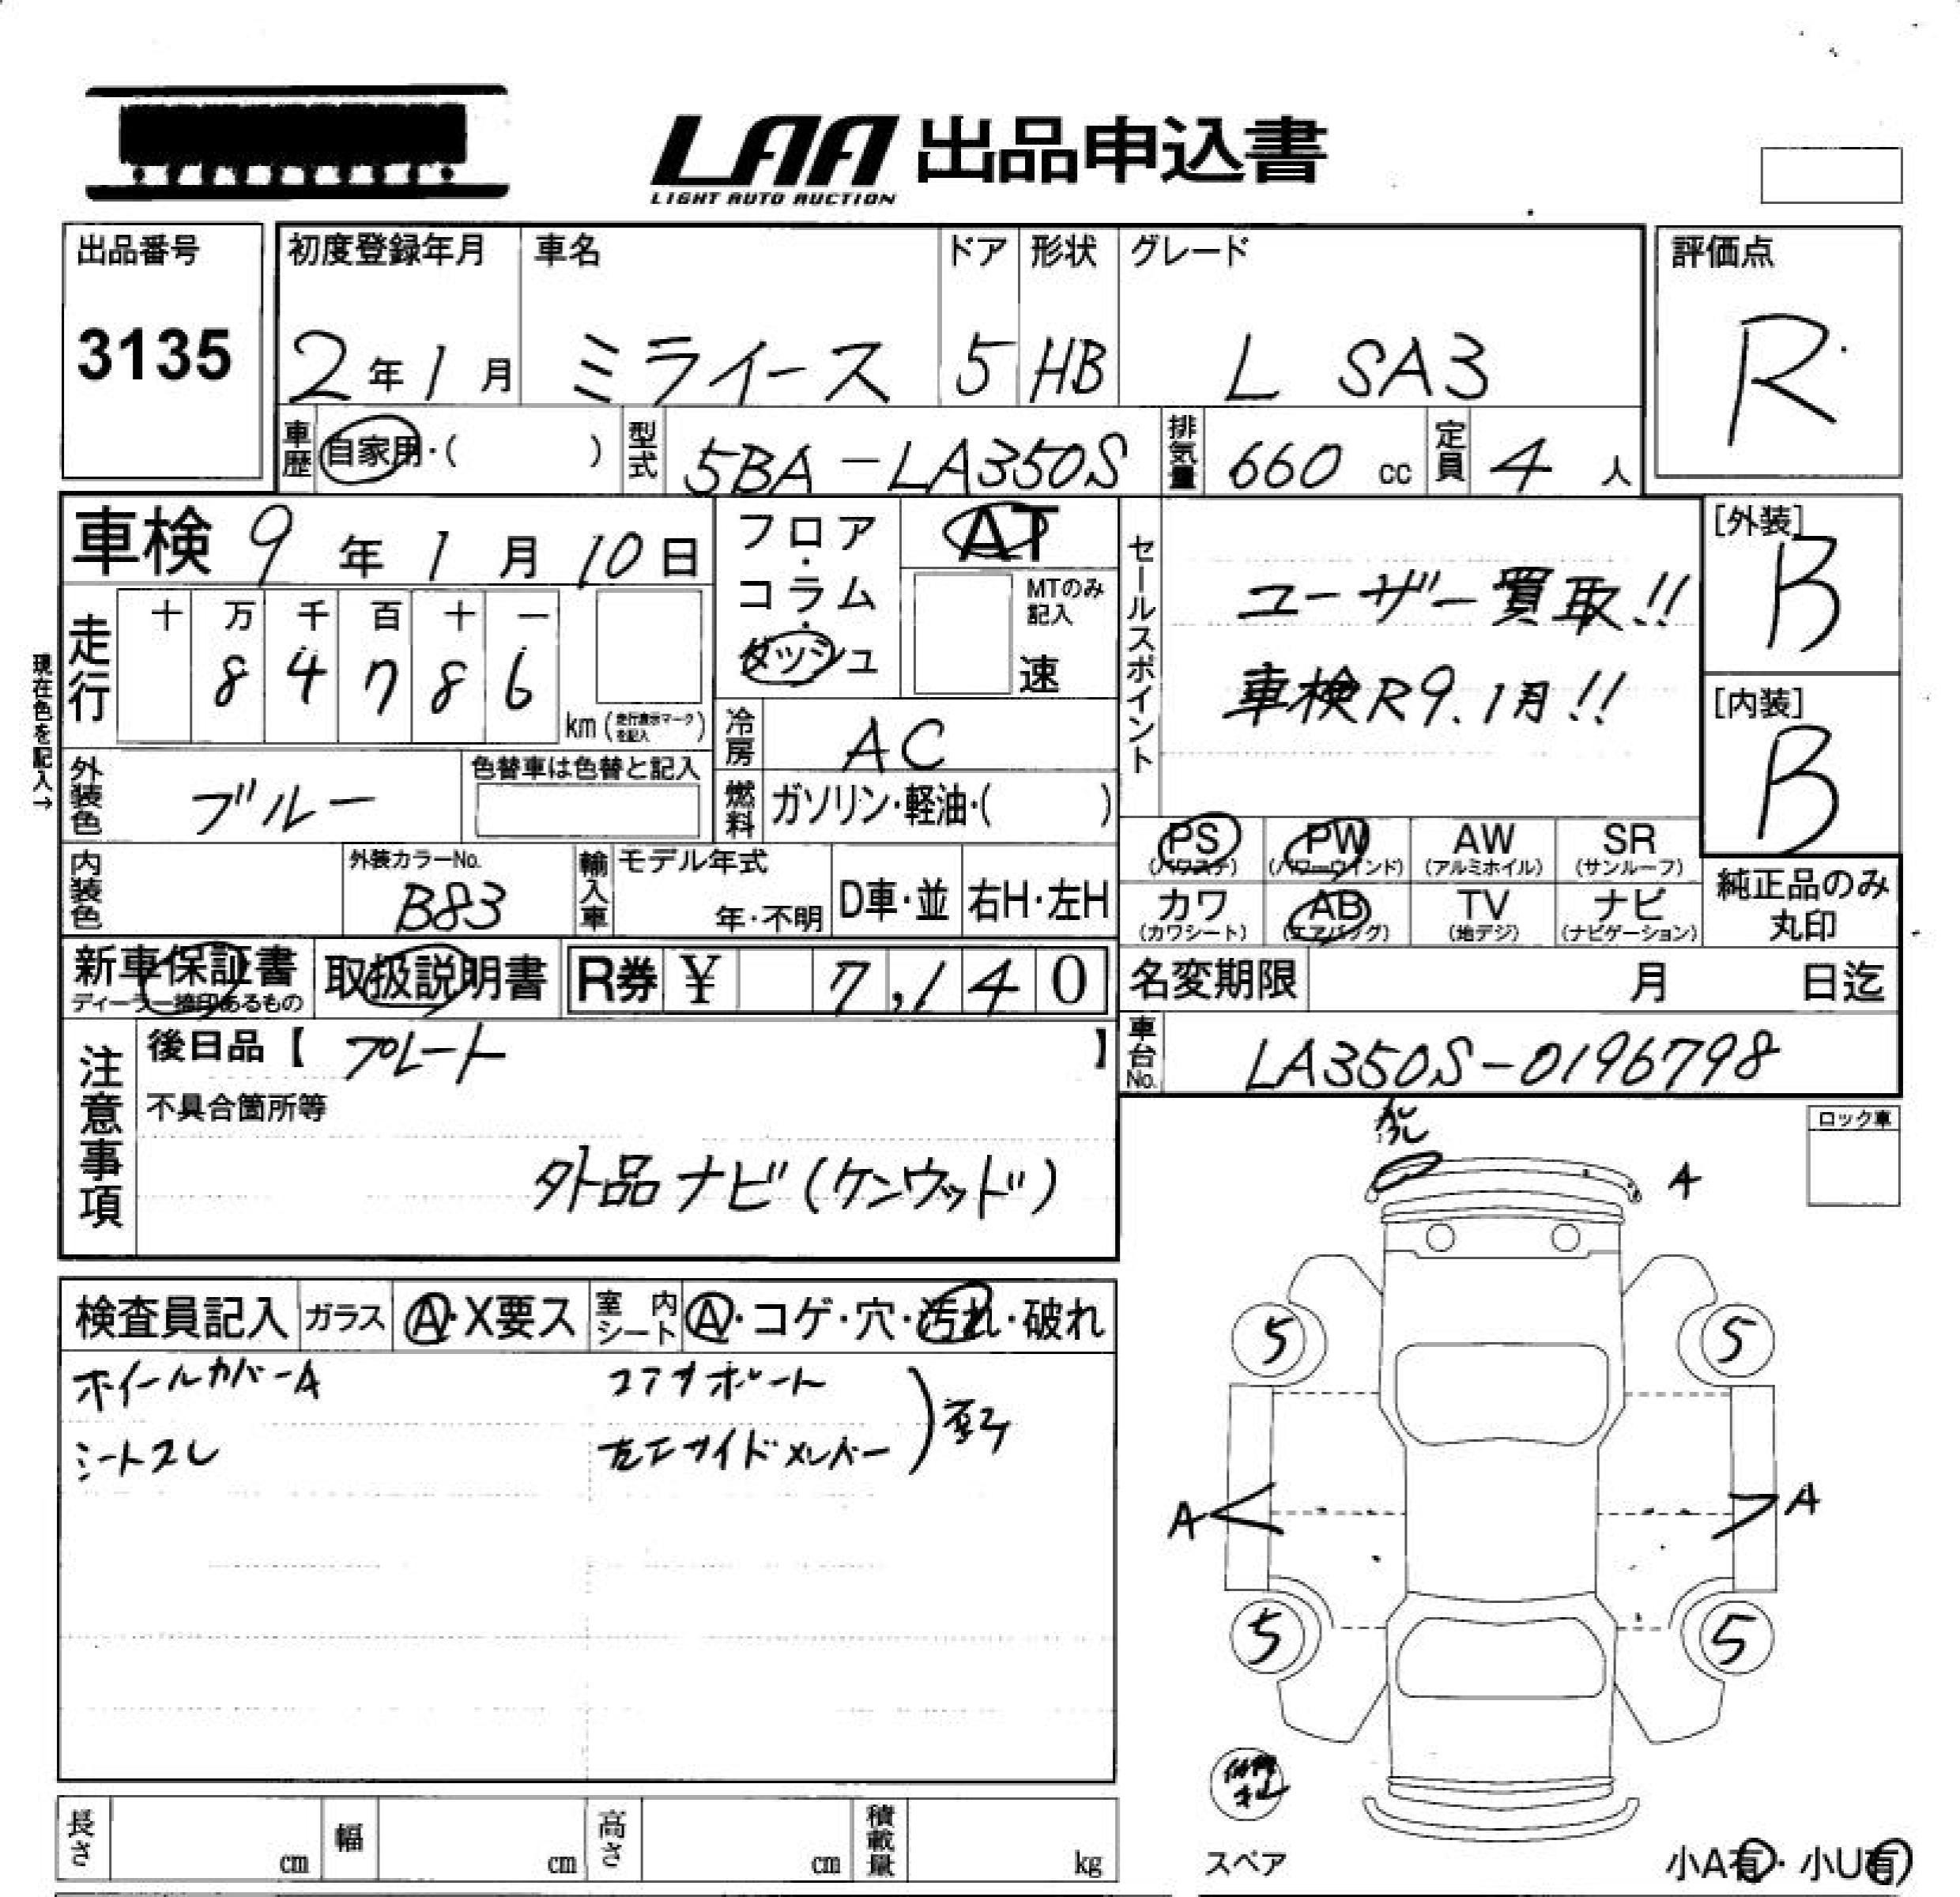 LAA 出品申込書
LIGHT AUTO AUCTION
出品番号
3135
初度登録年月
2年1月
車名
ミライース
ドア
5
形状
HB
グレード
L SA3
評価点
R
車歴
自家用・( )
型式
5BA-LA350S
排気量
660 cc
定員
4 人
車検 9年1月10日
フロア・コラム・ダッシュ
AT
MTのみ記入
速
セールスポイント
ユーザー買取!!
車検R9.1月!!
[外装]
B
[内装]
B
現在色を記入→
走行
十 万 千 百 十 一
8 4 7 8 6
km (走行表示マークを記入)
冷房
AC
外装色
ブルー
色替車は色替と記入
燃料
ガソリン・軽油・( )
PS (パワステ)
PW (パワーウインド)
AW (アルミホイル)
SR (サンルーフ)
カワ (カワシート)
AB (エアバッグ)
TV (地デジ)
ナビ (ナビゲーション)
純正品のみ丸印
内装色
外装カラーNo.
B83
輸入車
モデル年式
年・不明
D車・並
右H・左H
新車保証書
ディーラー捺印あるもの
取扱説明書
R券 ¥ 7,140
名変期限 月 日迄
車台No.
LA350S-0196798
注意事項
後日品【 プレート 】
不具合箇所等
外品ナビ(ケンウッド)
ロック車
A
検査員記入
ガラス
A・X要ス
室内シート
A・コゲ・穴・汚れ・破れ
ホイールカバーA
コアサポート
シートスレ
左エプサイドメンバー
5
5
A
A
5
5
スペア
小A有・小U有
長さ cm
幅 cm
高さ cm
積載量 kg